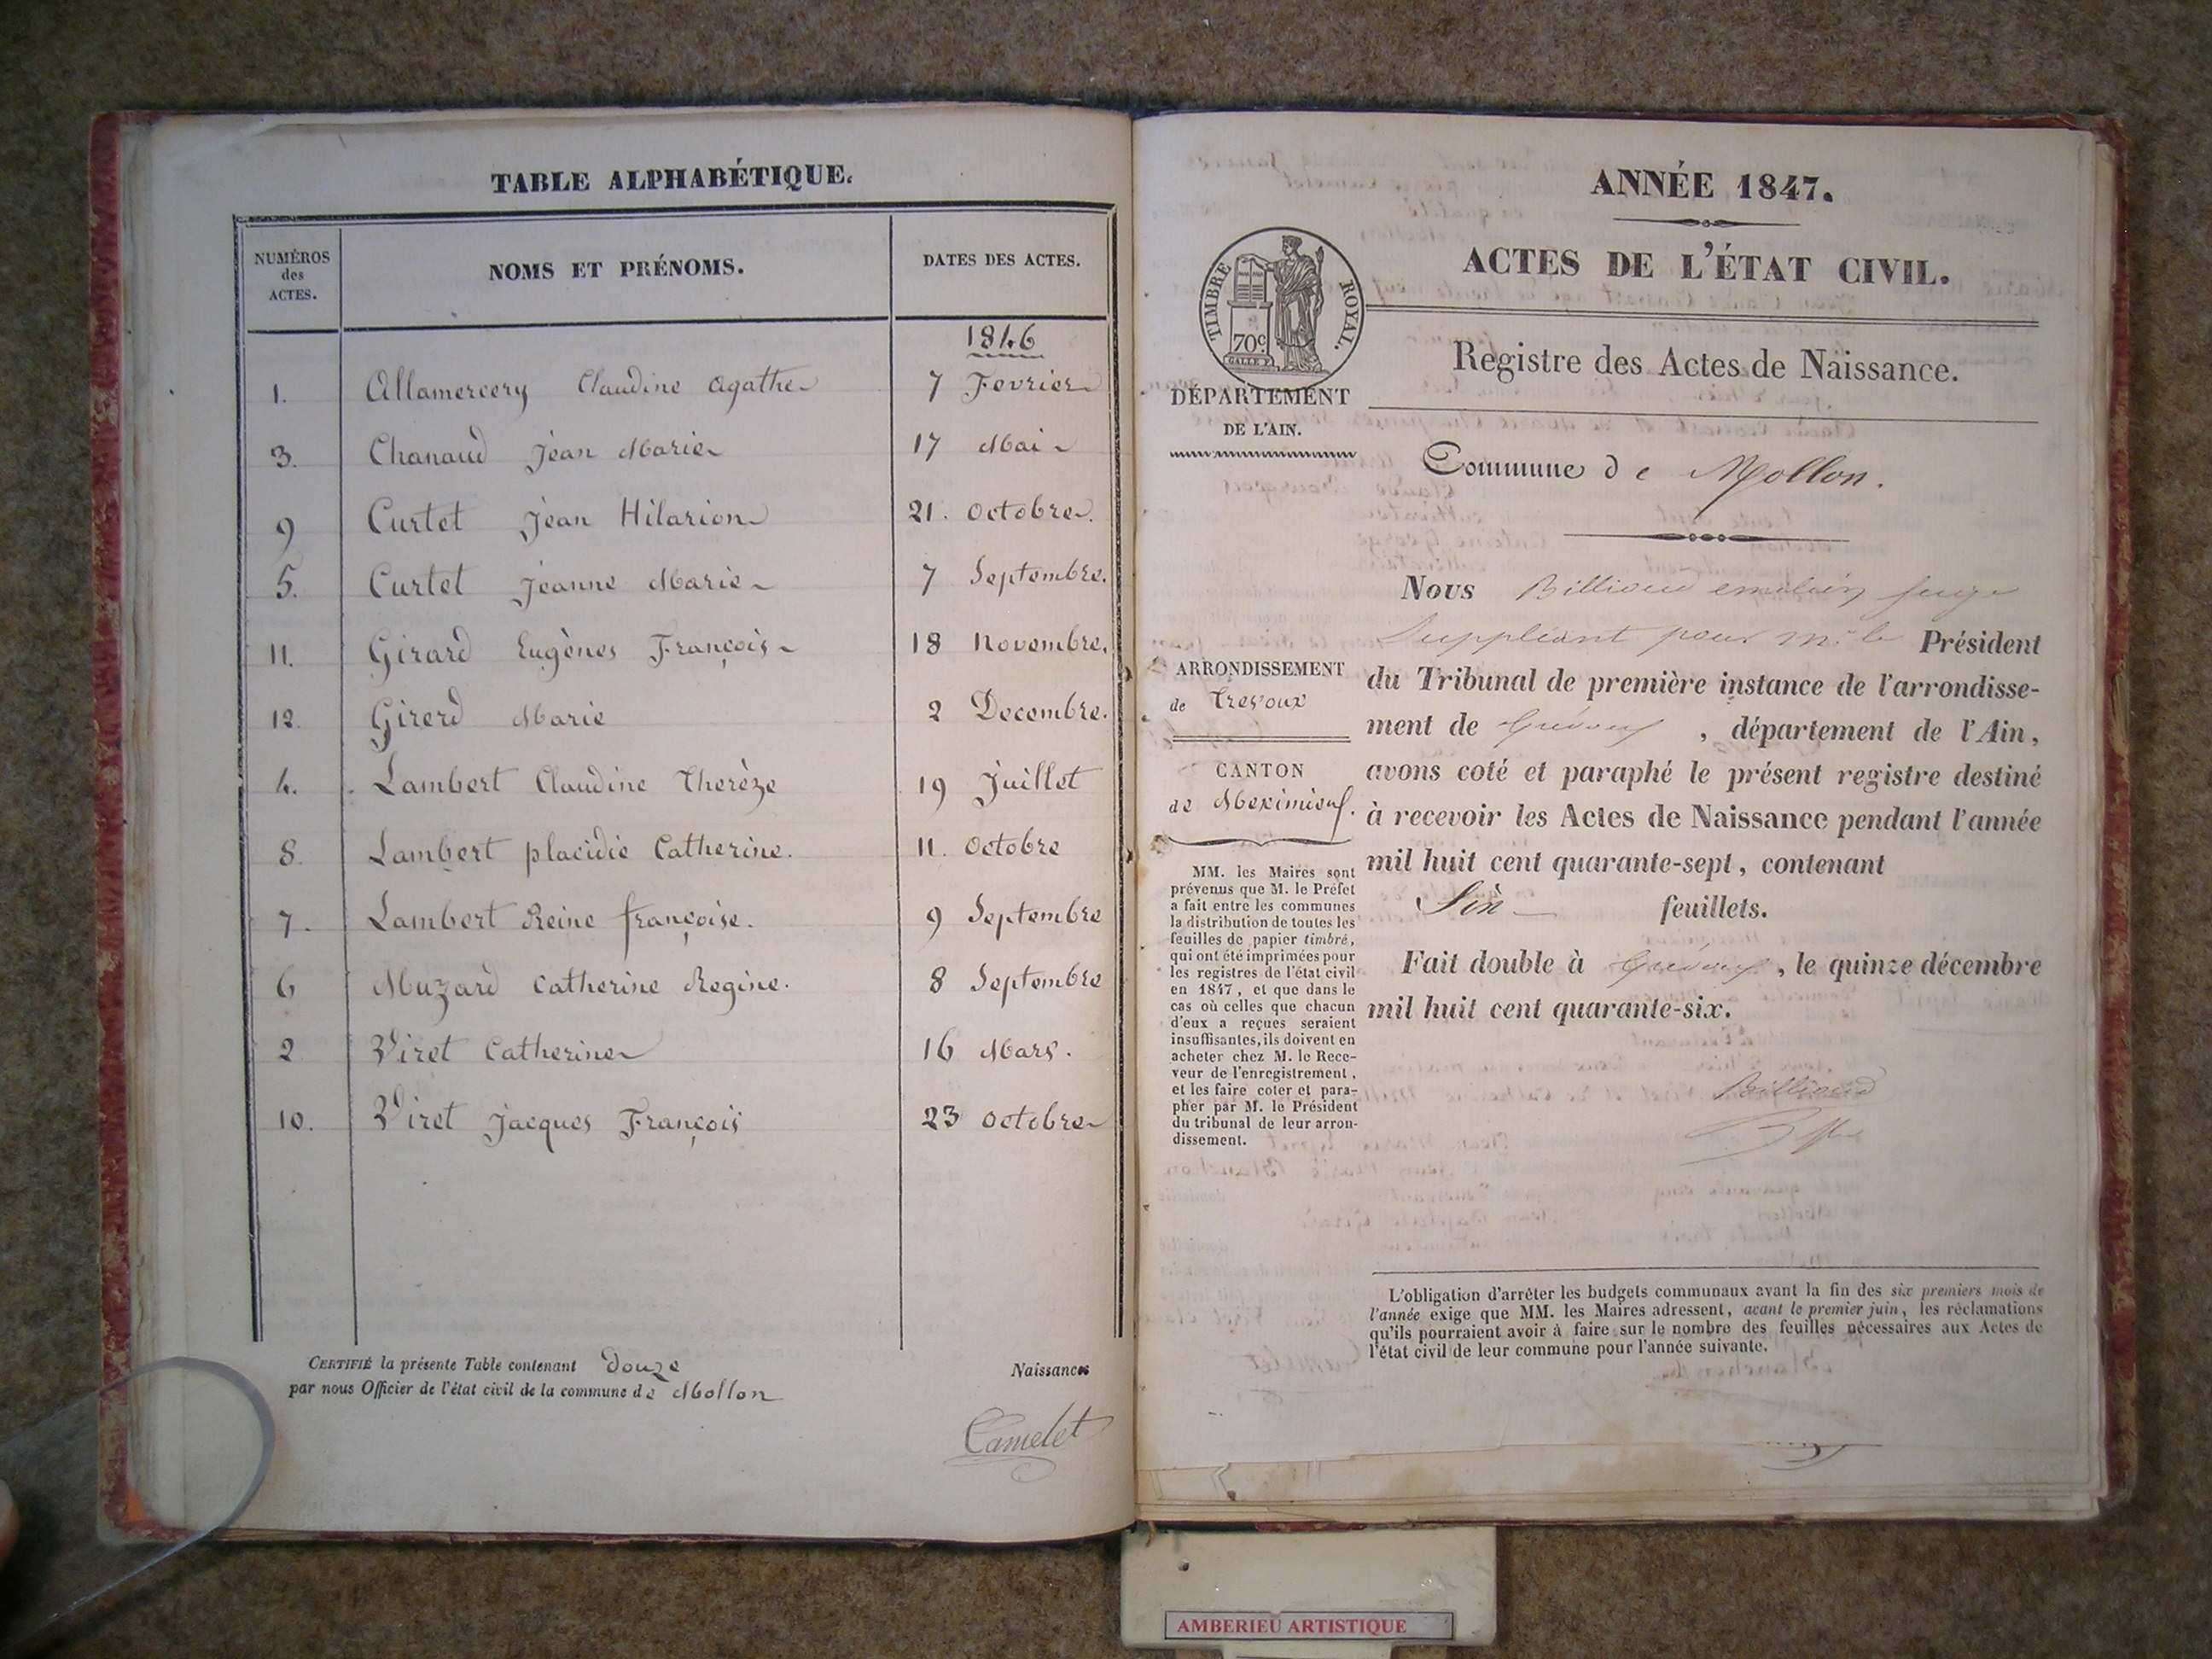 TABLE ALPHABÉTIQUE.
NUMÉROS des ACTES. NOMS ET PRÉNOMS. DATES DES ACTES.
1846
1. Allamercery Claudine agathe 7 Fevrier
3. Chanaud Jean Marie 17 Mai
9 Curtet Jean Hilarion 21. octobre.
5. Curtet Jeanne Marie 7 Septembre.
11. Girard Eugènes François 18 Novembre.
12. Girerd Marie 2 Decembre.
4. Lambert Claudine Therèze 19 Juillet
8. Lambert placidie Catherine. 11. octobre
7. Lambert Reine françoise. 9 Septembre
6 Muzard Catherine Regine. 8 Septembre
2 Viret Catherine 16 Mars.
10. Viret Jacques François 23 octobre
CERTIFIÉ la présente Table contenant douze Naissances
par nous Officier de l'état civil de la commune de Mollon
Camelet
ANNÉE 1847.
ACTES DE L'ÉTAT CIVIL.
TIMBRE ROYAL.
70c
GALLE F.
DÉPARTEMENT
DE L'AIN.
Registre des Actes de Naissance.
Commune de Mollon.
ARRONDISSEMENT
de Trevoux
CANTON
de Meximieux.
MM. les Maires sont
prévenus que M. le Préfet
a fait entre les communes
la distribution de toutes les
feuilles de papier timbré,
qui ont été imprimées pour
les registres de l'état civil
en 1847, et que dans le
cas où celles que chacun
d'eux a reçues seraient
insuffisantes, ils doivent en
acheter chez M. le Rece-
veur de l'enregistrement,
et les faire coter et para-
pher par M. le Président
du tribunal de leur arron-
dissement.
Nous Billioud juge
Suppléant pour Mr le Président
du Tribunal de première instance de l'arrondisse-
ment de Trévoux, département de l'Ain,
avons coté et paraphé le présent registre destiné
à recevoir les Actes de Naissance pendant l'année
mil huit cent quarante-sept, contenant
Six feuillets.
Fait double à Trévoux, le quinze décembre
mil huit cent quarante-six.
Billioud
L'obligation d'arrêter les budgets communaux avant la fin des six premiers mois de
l'année exige que MM. les Maires adressent, avant le premier juin, les réclamations
qu'ils pourraient avoir à faire sur le nombre des feuilles nécessaires aux Actes de
l'état civil de leur commune pour l'année suivante.
AMBERIEU ARTISTIQUE